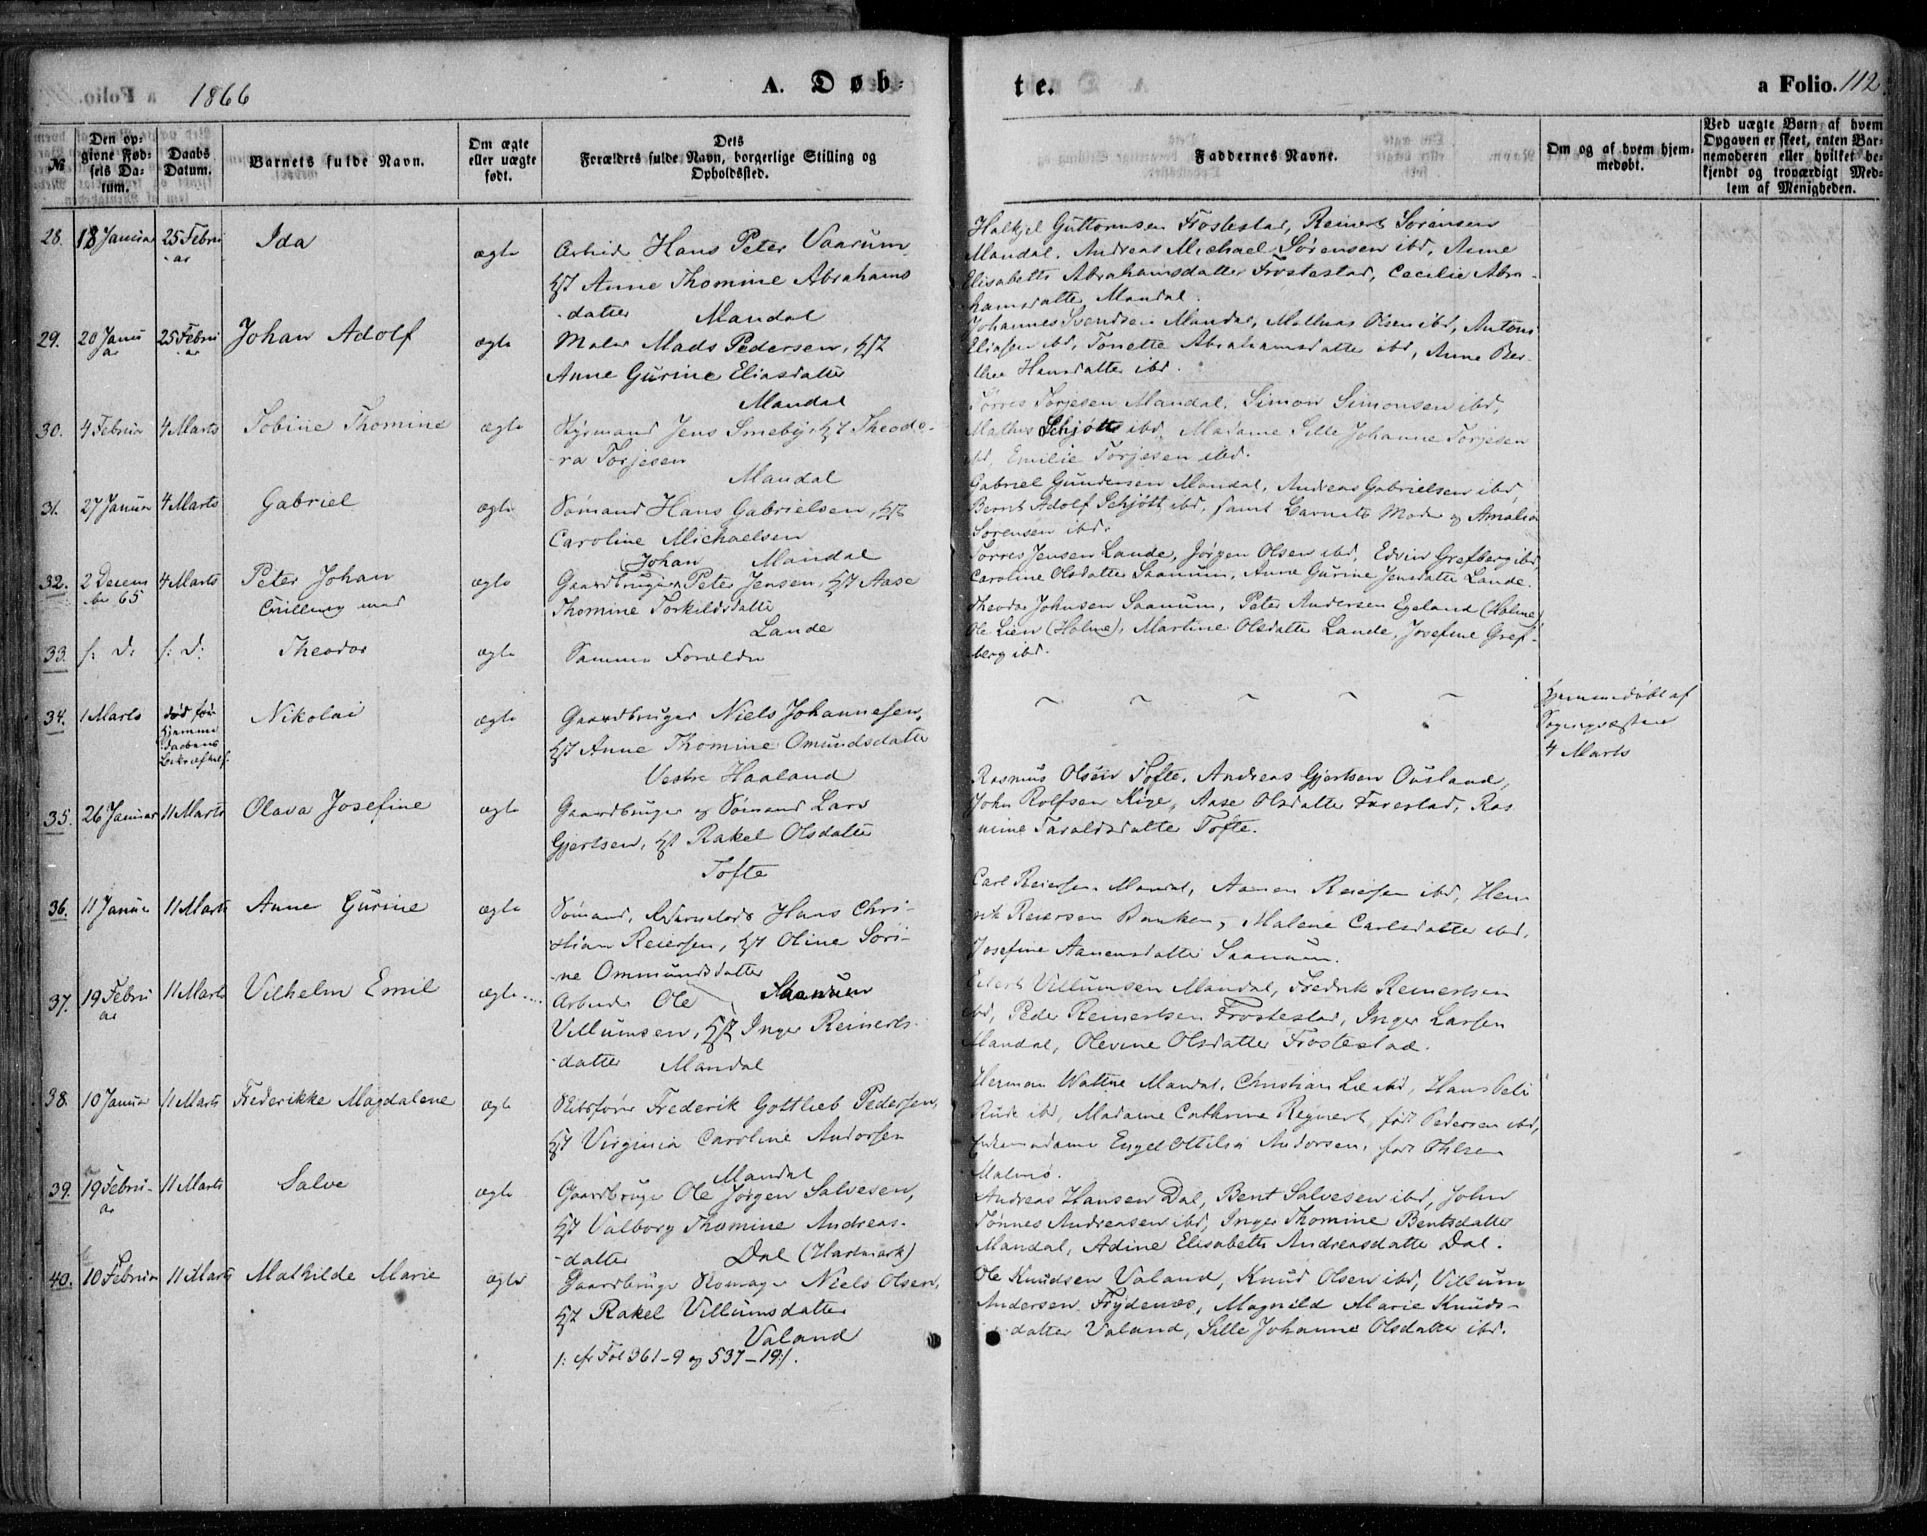 1866
A. Døb-
te.
a Folio. 112
№
Den op-
givne Fød-
sels Da-
tum.
Daabs
Datum.
Barnets fulde Navn.
Om ægte
eller uægte
født.
Dets
Forældres fulde Navn, borgerlige Stilling og
Opholdssted.
Faddernes Navne.
Om og af hvem hjem-
medøbt.
Ved uægte Børn af hvem
Opgaven er skeet, enten Bar-
nemoderen eller hvilket be-
kjendt og troværdigt Med-
lem af Menigheden.
28. 18 Januar 25 Febru
ar
Ida
ægte
Arbeid Hans Peter Vaarum
Anne Thomine Abrahams
-datter Mandal
Guttormsen Frøstestad, Reinert Sørensen
Mandal, Andreas Michael Sørensen ibd, Anne
Elisabeth Abrahamsdatter Frøstestad, Cecilie Abra-
hamsdatter Mandal.
29. 20 Janu
ar
25 Febru
ar
Johan Adolf
ægte
Maler Mads Pedersen,
Anne Gurine Eliasdatter
Mandal
Johannes Svendsen Mandal, Mathias Olsen ibd, Anton
Eliasen ibd, Tonette Abrahamsdatter ibd, Anne Ber-
thea Hansdatter ibd.
30. 4 Februar 4 Marts
Tobine Thomine
ægte
Styrmand Jens Smeby, Theodo-
ra Torjesen
Mandal
Tørres Torjesen Mandal, Simon Simonsen ibd,
Mathis Schjøtt ibd, Madame Sille Johanne Torjesen
ibd, Emilie Torjesen ibd.
31. 27 Januar 4 Marts
Gabriel
ægte
Sømand Hans Gabrielsen,
Caroline Michaelsen
Mandal
Gabriel Gundersen Mandal, Andreas Gabrielsen ibd,
Bernt Adolf Schjøtt ibd, samt Barnets Moder og Amalia
Sørensen ibd.
32. 2 Decem
ber 65
4 Marts
Peter Johan
Tvilling med
ægte
Johan
Gaardbruger Peter Jensen, Aase
Thomine Torkildsdatter
Lande
Tørres Jensen Lande, Jørgen Olsen ibd, Edvin Grefberg ibd
Caroline Olsdatter Saanum, Anne Gurine Jensdatter Lande.
33. f: D: f: D:
Theodor
ægte
Samme Forældre
Theodor Johnsen Saanum, Peter Andersen Egeland (Holme)
Ole Lien (Holme), Martine Olsdatter Lande, Josefine Gref-
berg ibd.
34. 1 Marts
død før
hjemme
daabens
bekræftelse
Nikolai
ægte
Gaardbruger Niels Johannesen,
Anne Thomine Omundsdatter
Vestre Haaland
Hjemmedøbt af
4 Marts
35. 26 Januar 11 Marts
Olava Josefine
ægte
Gaardbruger og Sømand Lars
Gjertsen, Rakel Olsdatter
Tofte
Rasmus Olsen Tofte, Andreas Gjertsen Ousland,
John Rolfsen Kige, Aase Olsdatter Farestad, Ras
mine Taraldsdatter Tofte.
36. 11 Januar 11 Marts
Anne Gurine
ægte
Sømand, Hans Chri-
stian Reiersen, Oline Sori-
ne Ommundsdatter
Saanum
Carl Reiersen Mandal, Aanen Reiersen ibd, Hen
rik Reiersen Banken, Malene Carlsdatter ibd,
Josefine Aanensdatter Saanum.
37. 19 Febru
ar
11 Marts
Vilhelm Emil
ægte
Arbeider Ole
Villumsen, Inger Reinerts-
-datter Mandal
Villumsen Mandal, Fredrik Reinertsen
ibd, Peder Reinertsen Frøstestad, Inger Larsen
Mandal, Olevine Olsdatter Frøstestad.
38. 10 Januar 11 Marts
Frederikke Magdalene
ægte
Skibsfører Frederik Gottlieb Pedersen,
Virginia Caroline Andorsen
Mandal
Herman Wattne Mandal, Christian Lie ibd, Hans
Rude ibd, Madame Cathrine Regnert, født Pedersen ibd,
Enkemadame Engel Ottilia Andorsen, født Ohlsen
Malmø.
39. 19 Febru-
ar
11 Marts
Salve
ægte
Gaardbruger Ole Jørgen Salvesen,
Valborg Thomine Andreas-
-datter Dal (Hartmark)
Andreas Hansen Dal, Bent Salvesen ibd, John
Tønnes Andreasen ibd, Inger Thomine Bentsdatter
Mandal, Adine Elisabeth Andreasdatter Dal.
40. 10 Februar 11 Marts
Mathilde Marie
ægte
Gaardbruger Niels Olsen,
Rakel Villumsdatter
Valand
/: cfr Fol 361-9 og 537-19 :/.
Ole Knudsen Valand, Knud Olsen ibd, Villum
Andersen Frydenæs, Magnild Marie Knuds-
datter Valand, Sille Johanne Olsdatter ibd.